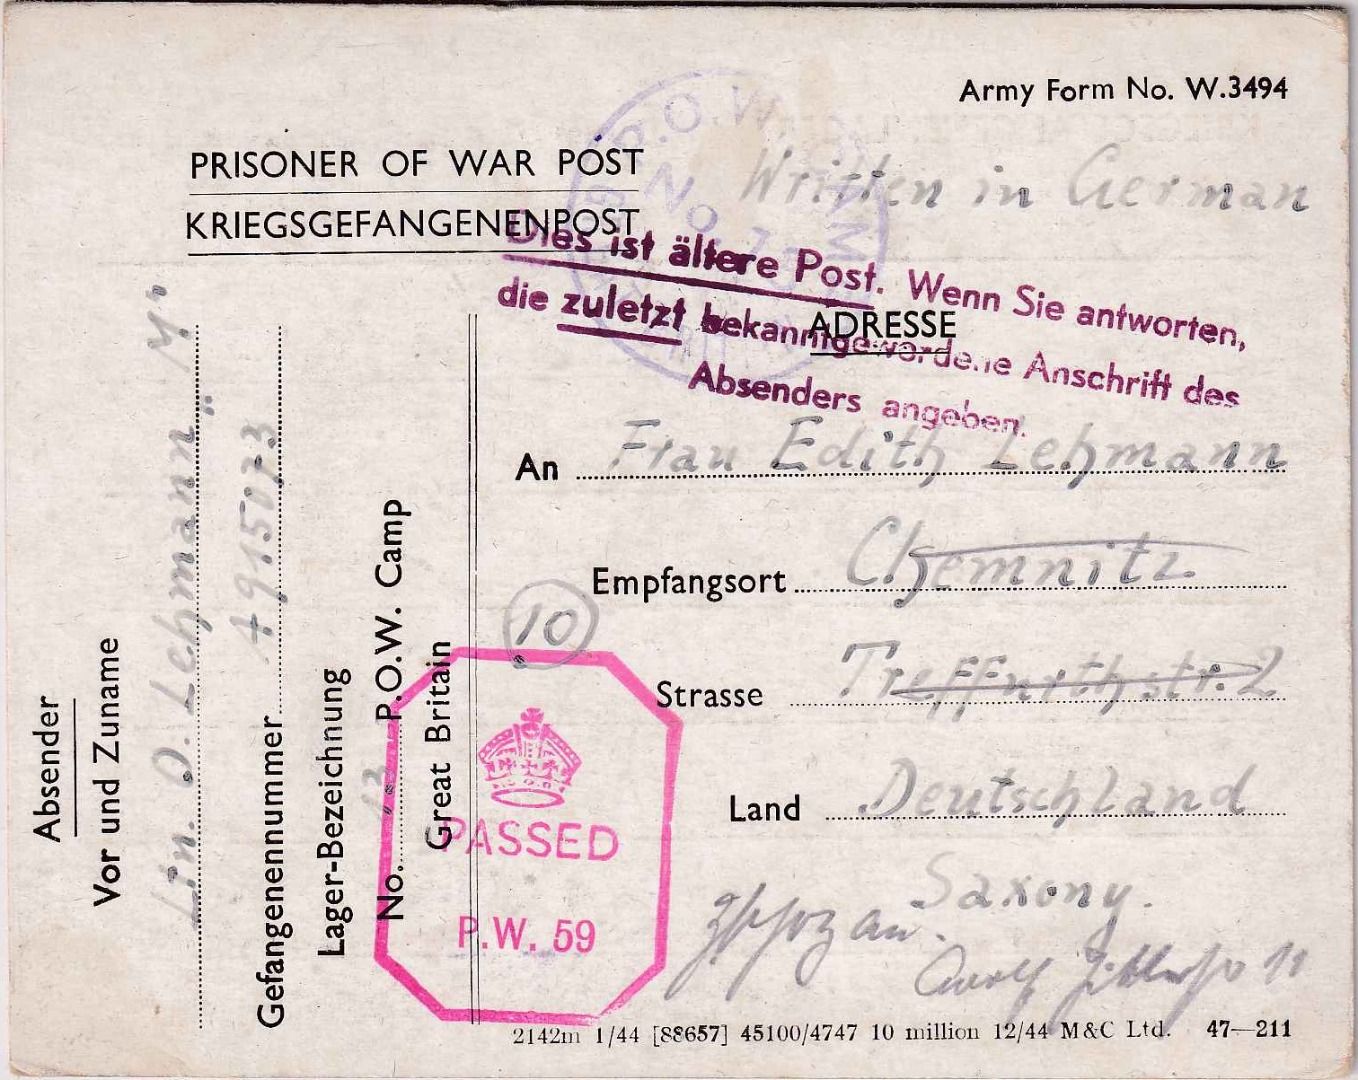 Army Form No. W.3494
PRISONER OF WAR POST
KRIEGSGEFANGENENPOST
P.O.W. CAMP
No. 13
Written in German
Dies ist ältere Post. Wenn Sie antworten,
die zuletzt bekanntgewordene Anschrift des
Absenders angeben.
ADRESSE
An Frau Edith Lehmann
Empfangsort Chemnitz
10
Strasse Treffurthstr. 2
Land Deutschland
Saxony.
Adolf
Absender
Vor und Zuname
O. Lehmann
Gefangenennummer A 915073
Lager-Bezeichnung
No. 13 P.O.W. Camp
Great Britain
PASSED
P.W. 59
2142m 1/44 [88657] 45100/4747 10 million 12/44 M&C Ltd. 47—211